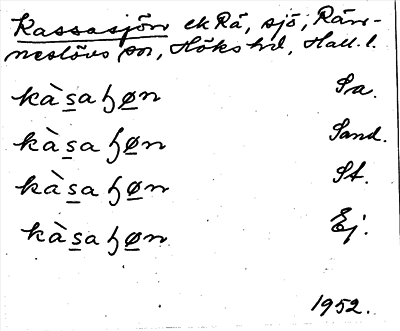 Kassasjön ek Rå, sjö; Rän-
neslövs sn, Höks hd, Hall. l.
kàsaɧøn Sa.
kàsaɧøn Sand.
kàsaɧøn St.
kàsaɧøn Ej.
1952.